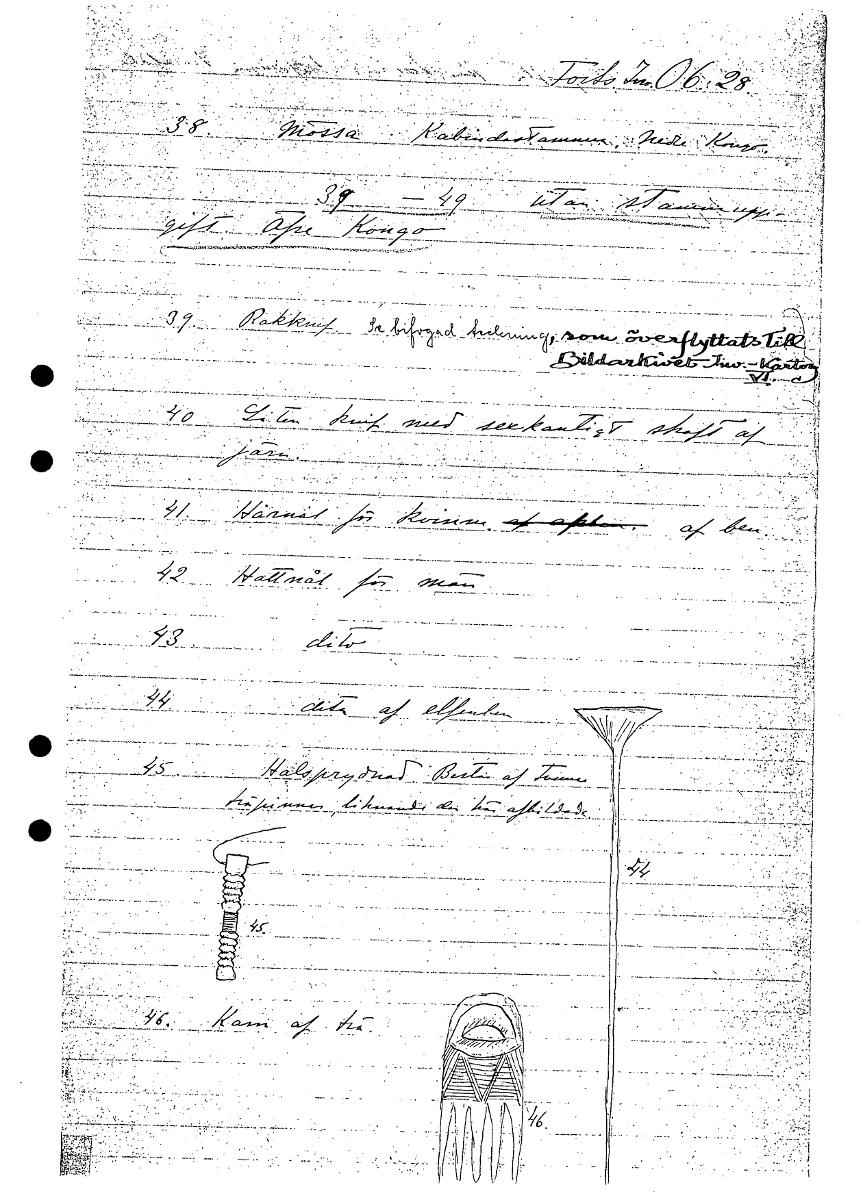 Forts Inv. 06.28.
38 Mössa. Kabindastammen, nedre Kongo.
39 – 49 utan stamupp-
gift Öfre Kongo
39. Rakknif Se bifogad teckning, som överflyttats till
Bildarkivet Inv.-Kartong
VI.
40 Liten knif med sexkantigt skaft af
järn.
41. Hårnål för kvinna af ben.
42 Hattnål för män
43 dito
44 dito af elfenben
45. Halsprydnad Består af tunna
träpinnar, liknande den här afbildade.
44
45.
46. Kam af trä.
46.